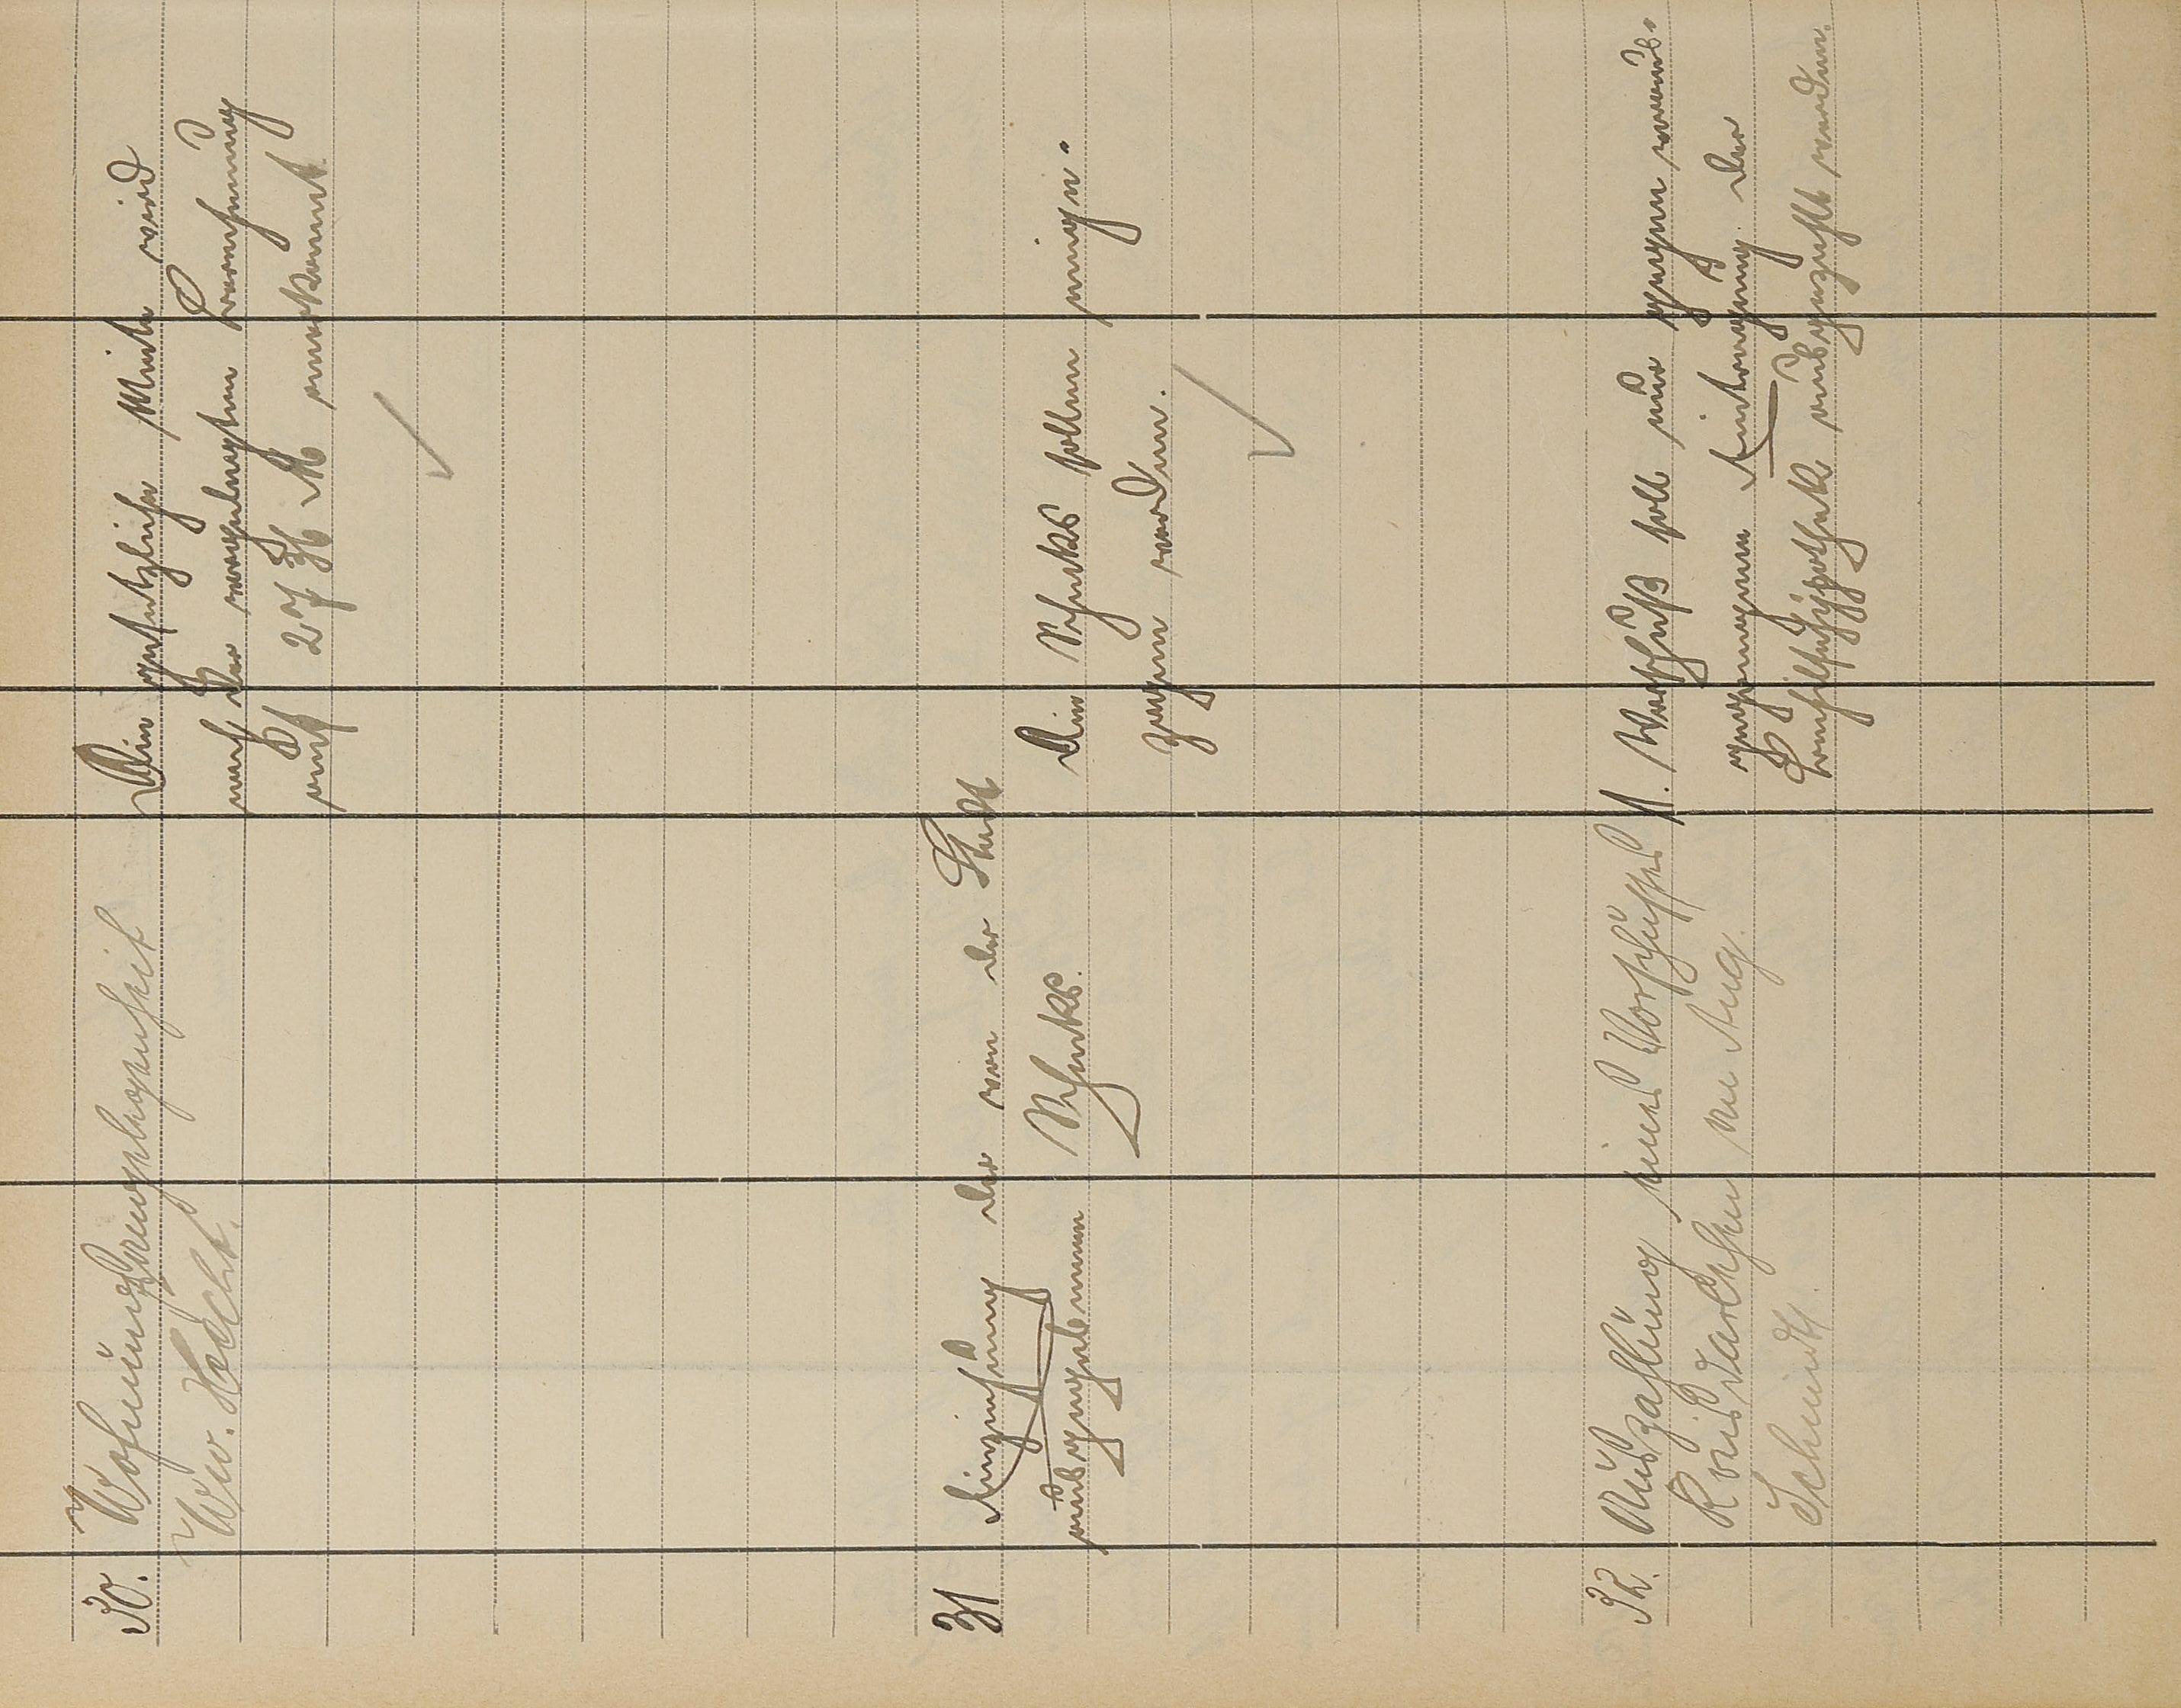 30.
Wohnungsangelegenheit
Ww. Hecht.
Die gesetzliche Miete wird
nach der vorgelegten Berechnung
auf 27,36 M anerkannt
31
Einziehung der von der Stadt
ausgegebenen Schecks.
Die Schecks sollen einge-
zogen werden.
32.
Auszahlung eines Vorschusses
Baudarlehen an Aug.
Schmidt.
1. Vorschuß soll nur gegen
gegangenen Eintragung der
ausgezahlt werden.